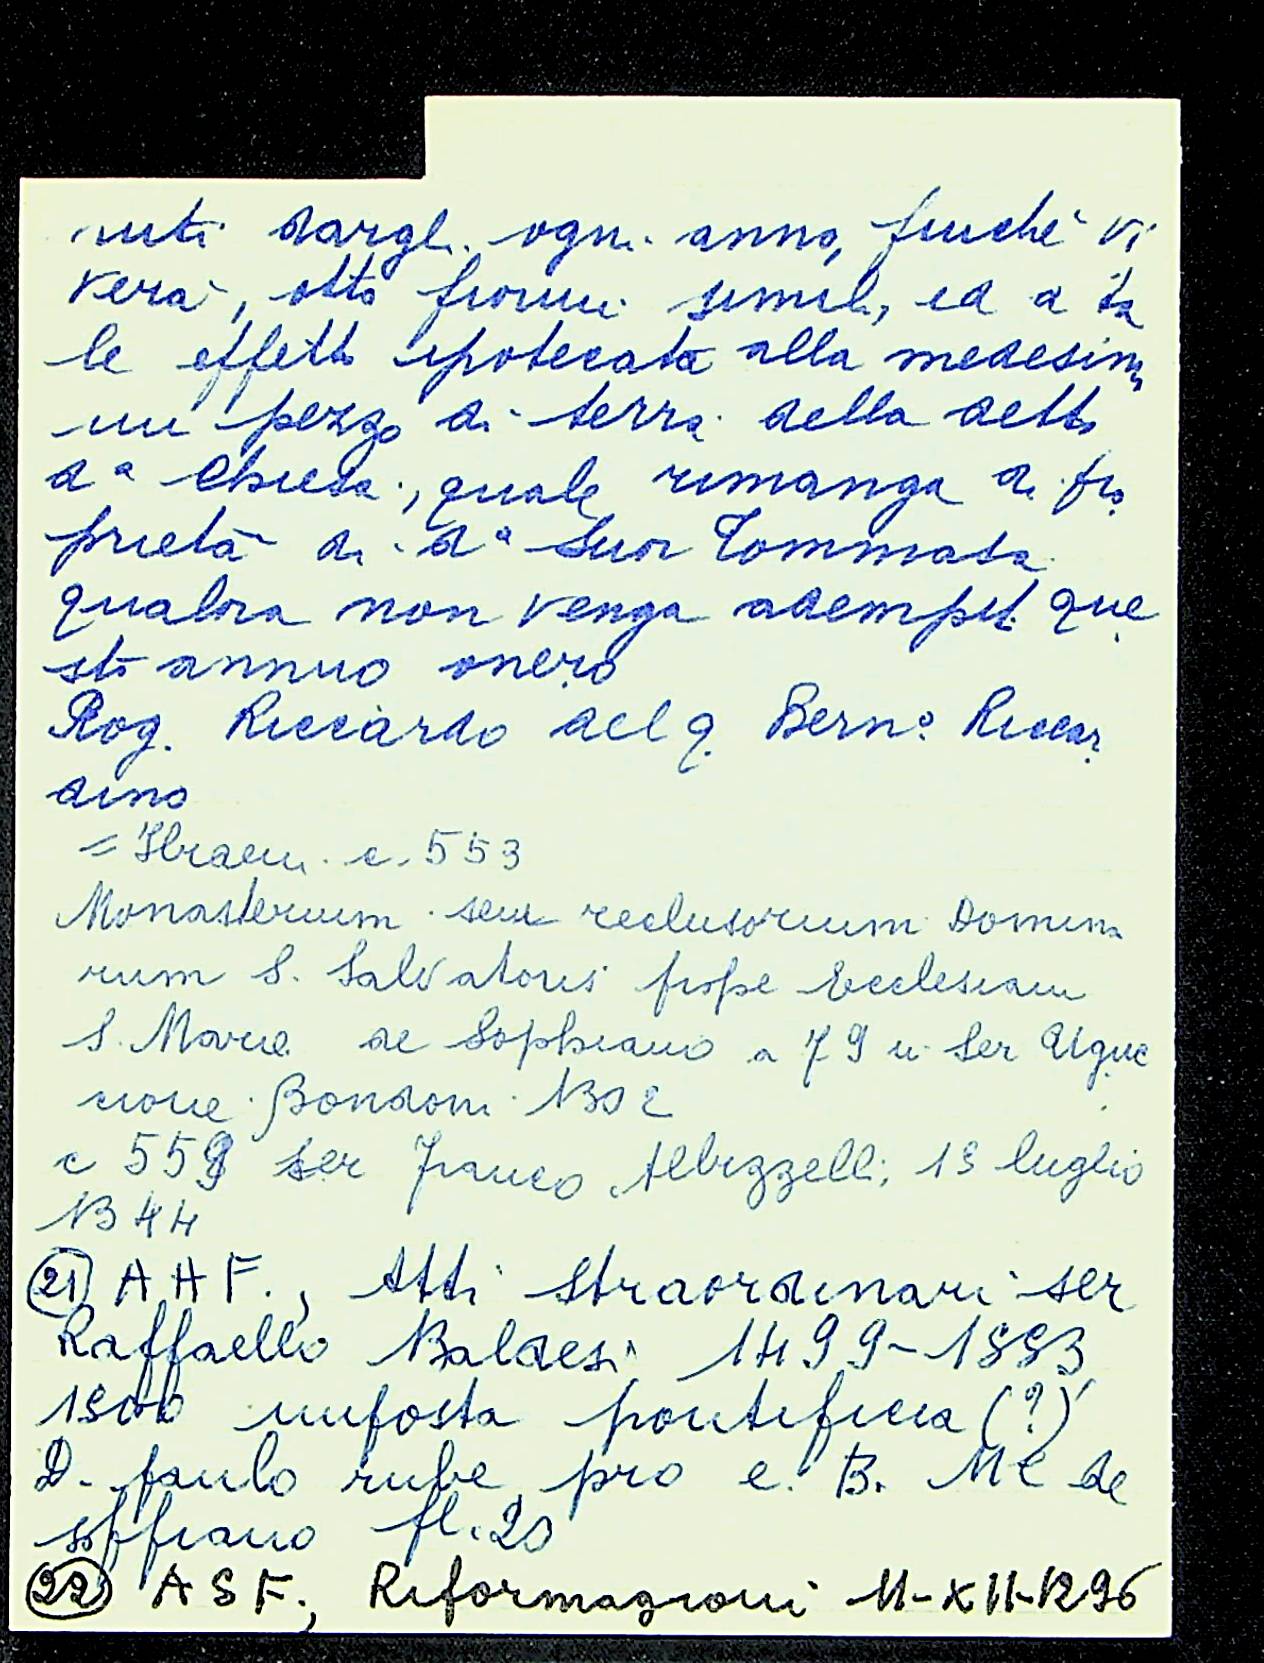 nuti dargli ogni anno, finchè vi
verà, otto fiorini simili, ed a ta
le effetto ipotecata alla medesima
un pezzo di terra della detto
da Chiesa, quale rimanga di pro
prietà di da Suor Tommasa
qualora non venga adempit que
sto annuo onero
Rog. Riccardo del q. Berno Riccar
dino
= Ibidem c. 553
Monasterium seu reclusorium Domina
rum S. Salvatoris prope Ecclesiam
S. Marie de Sophiano a 79 in Ser Uguc
cione Bondoni 1302
c 559 ser Franco Albizzelli, 13 luglio
1344
(21) A A F., Atti straordinari ser
Raffaello Baldesi 1499-1553
1500 imposta pontificia (?)
D. paulo rube pro e. B. ME de
soffiano fl. 20
(22) A S F., Riformagioni 11-XII-1296